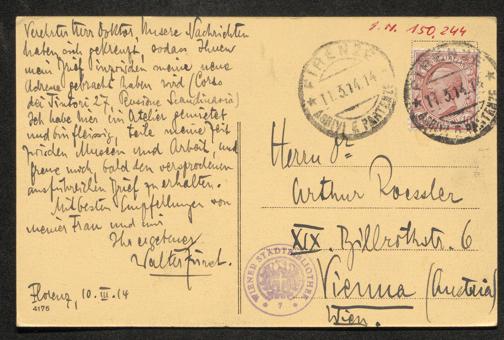 Verehrter Herr Doktor, Unsere Nachrichten
haben sich gekreuzt, sodass Ihnen
mein Brief inzwischen meine neue
Adresse gebracht haben wird (Corso
dei Tintori 27, Pensione Scandinavia)
Ich habe hier ein Atelier gemietet
und bin fleissig, teile meine Zeit
zwischen Museen und Arbeit, und
freue mich, bald den versprochenen
ausführlichen Brief zu erhalten.
Mit besten Empfehlungen von
meiner Frau und mir
Ihr ergebener
Walter Fürst.
Florenz, 10. III. 14
4175
150,244
FIRENZE
11.3.14.14
ARRIVI E PARTENZE
FIRENZE
11.3.14.14
ARRIVI E PARTENZE
Herrn Dr
Arthur Roessler
XIX. Billrothstr. 6
Vienna (Austria)
Wien.
WIENER STADTBIBLIOTHEK
7